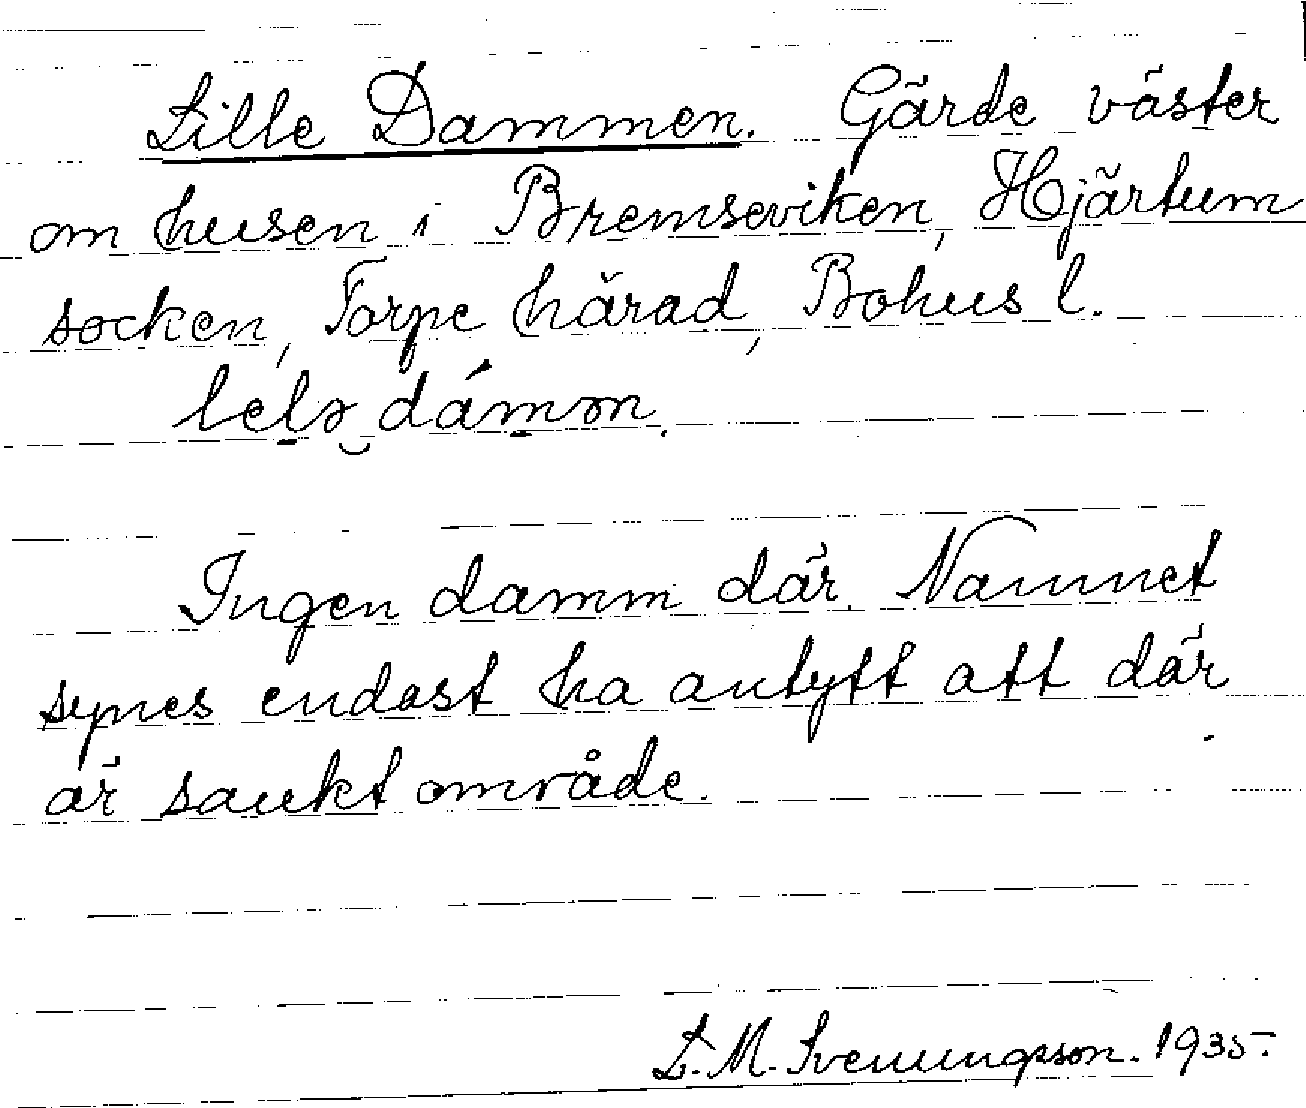 Lille Dammen. Gärde väster
om husen i Bremseviken, Hjärtum
socken, Torpe härad, Bohus l.
lelə dámən.
Ingen damm där. Namnet
synes endast ha antytt att där
är sankt område.
L. M. Svenungsson. 1935.